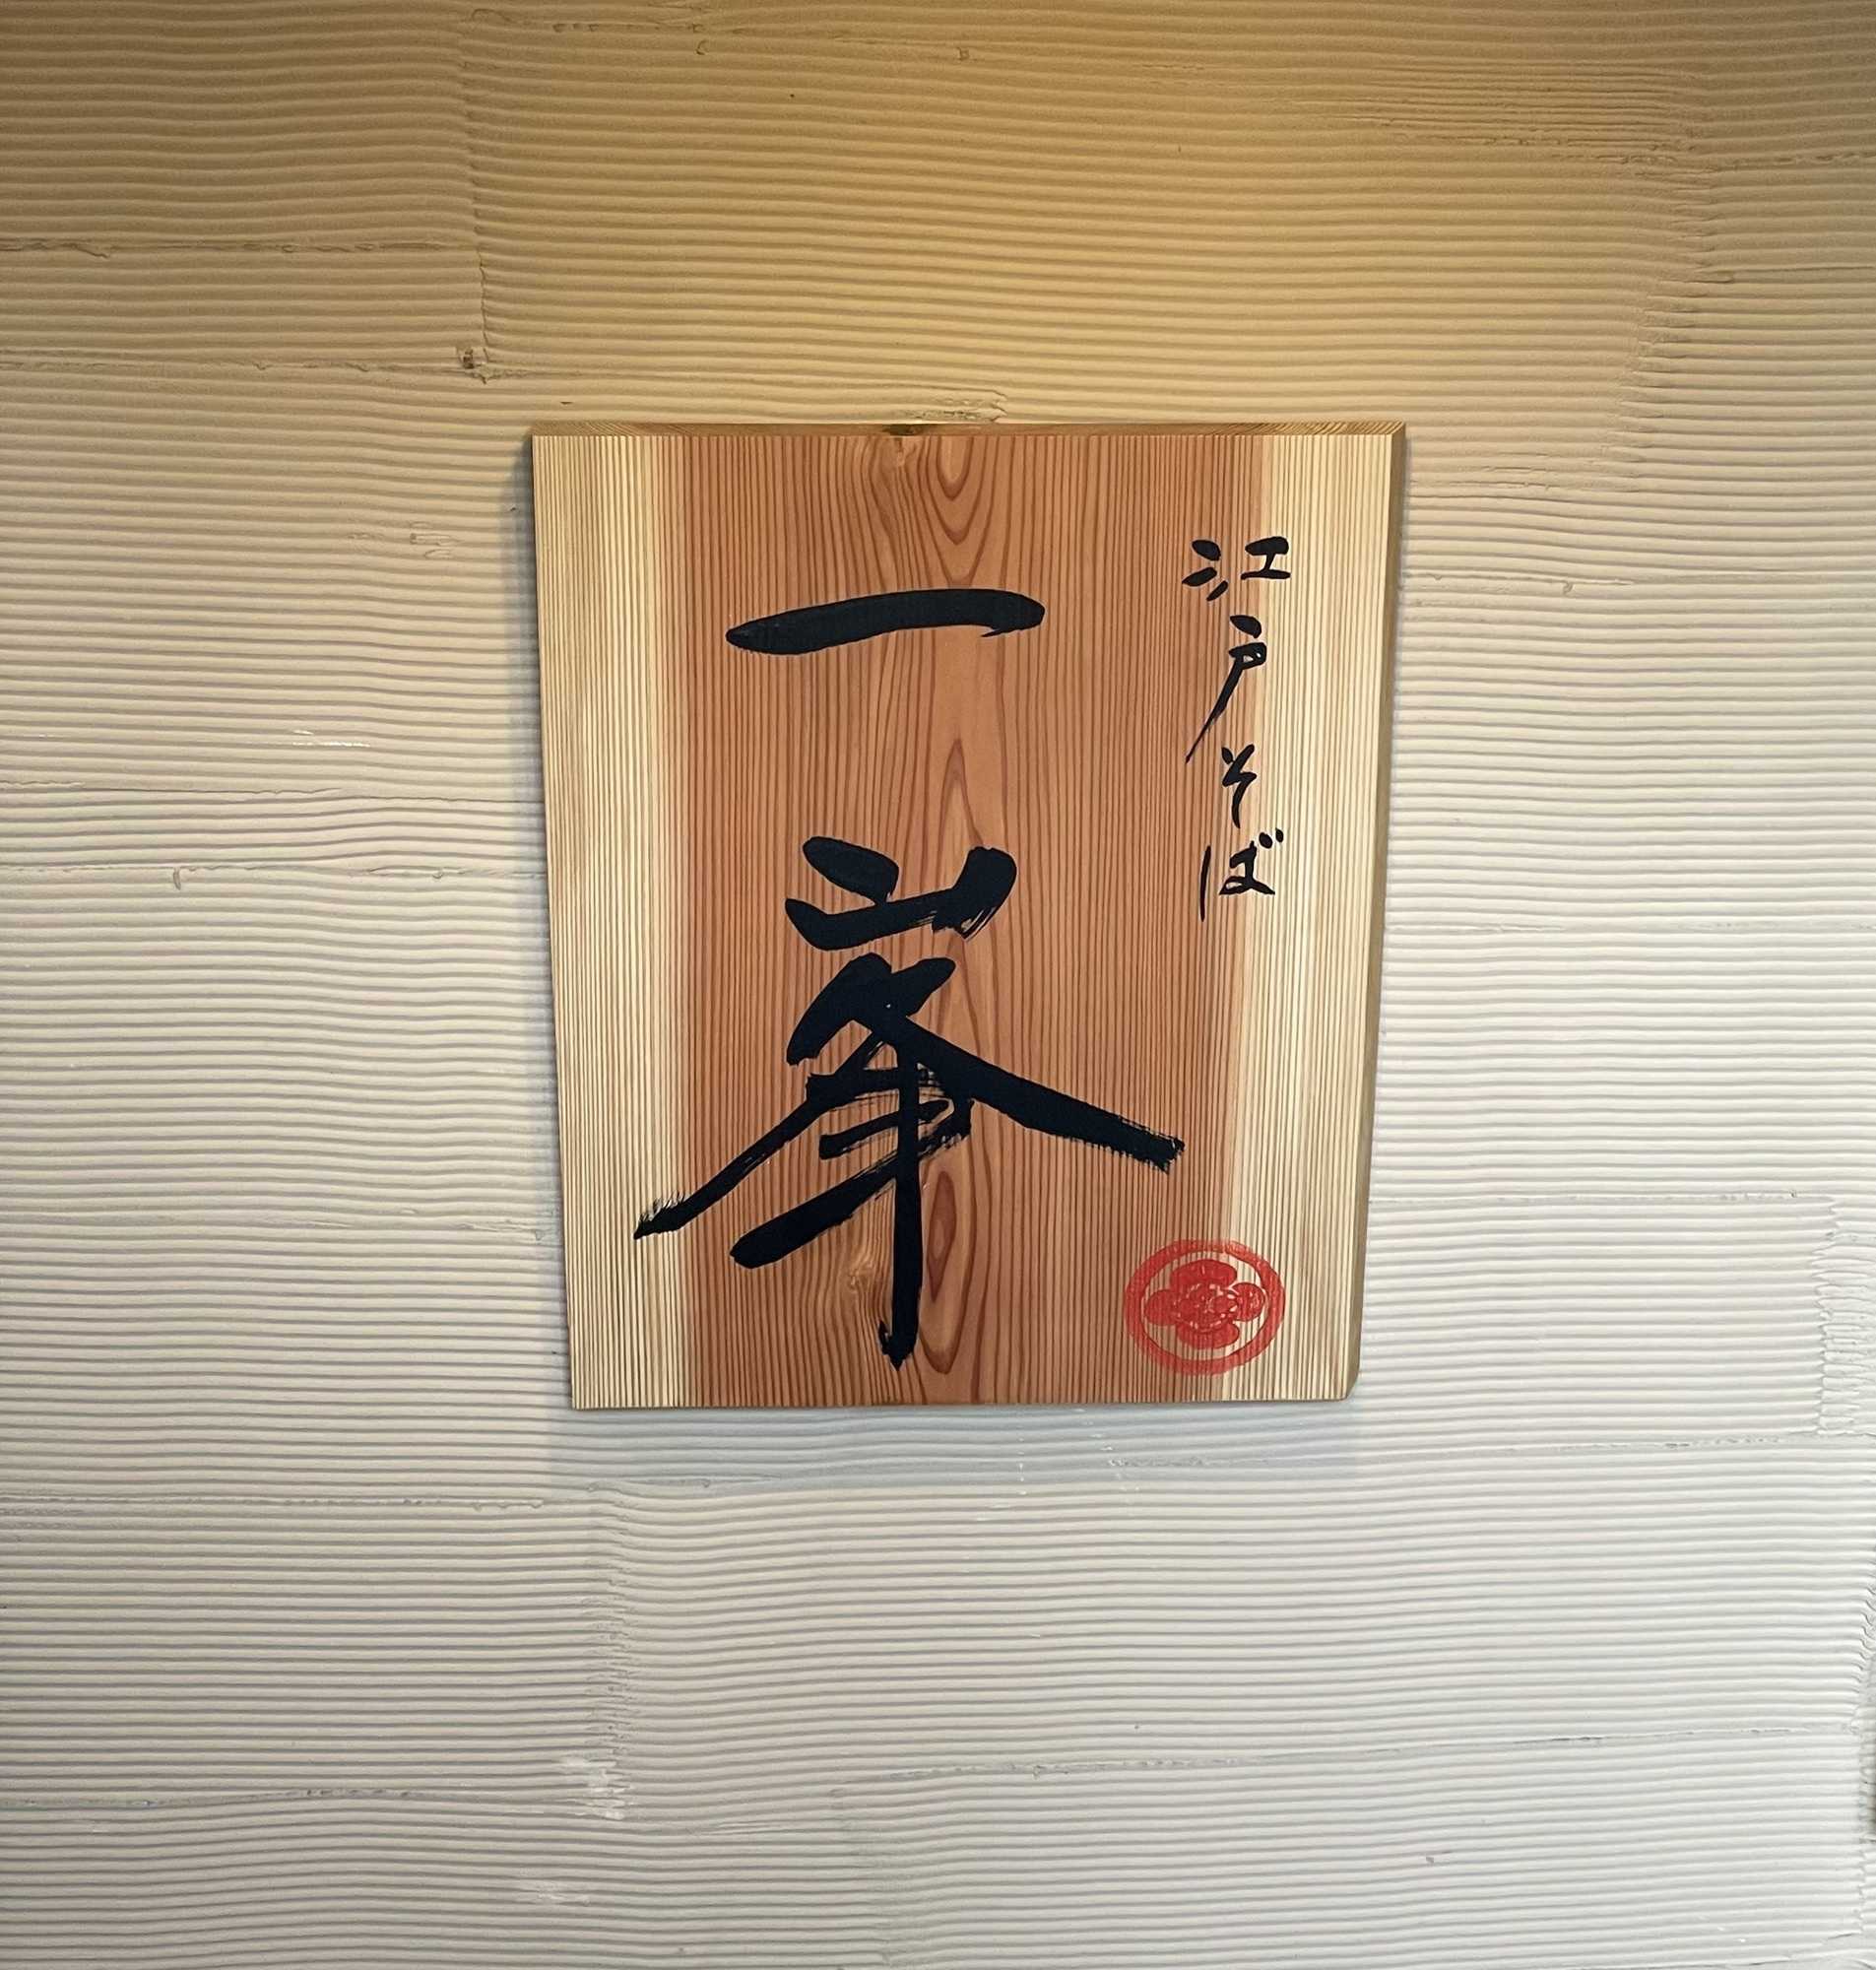 江戸そば
一峯